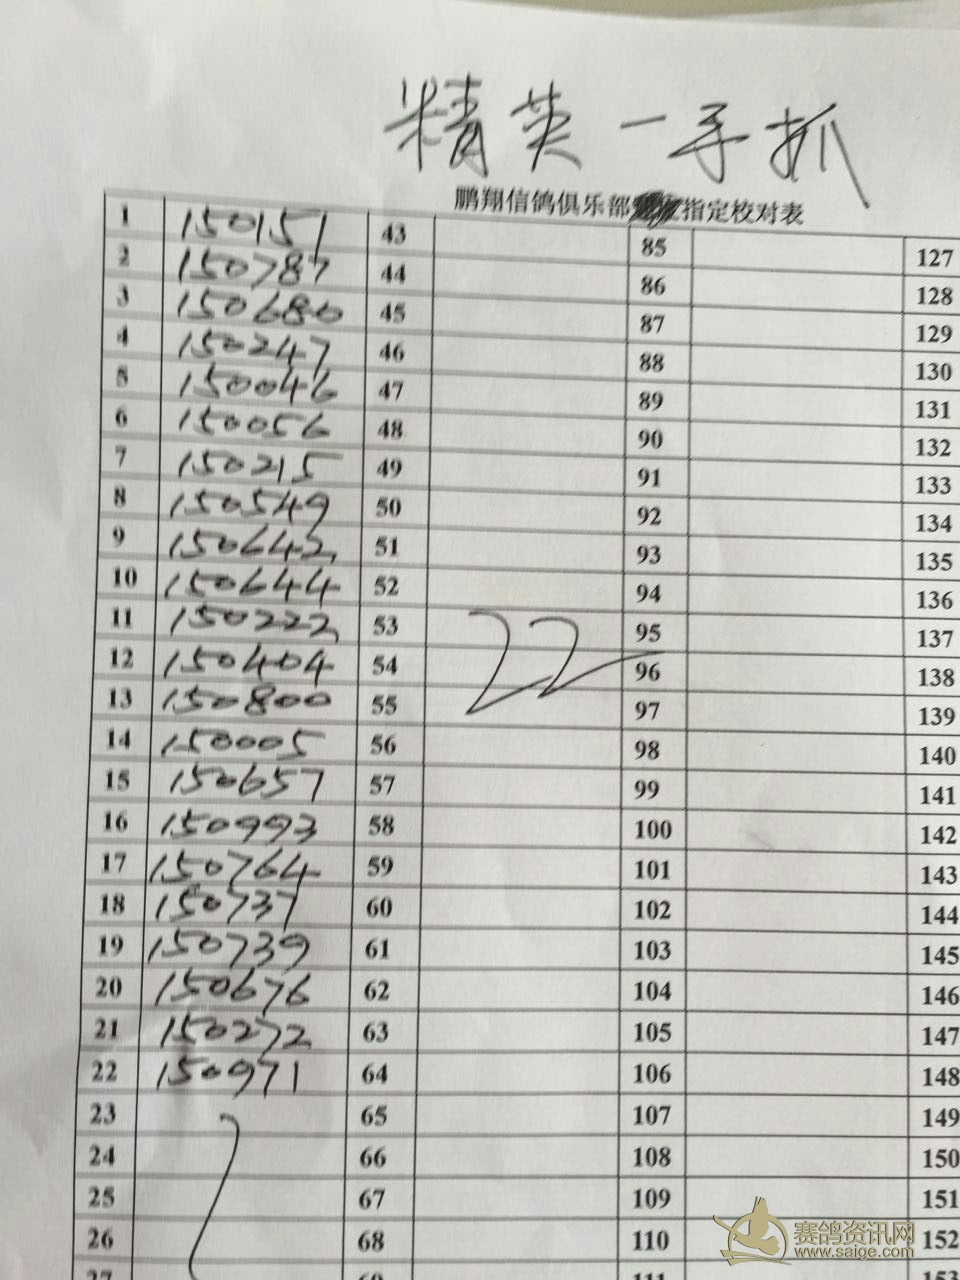 精英一手抓
鹏翔信鸽俱乐部 指定校对表
1 150151 43 85 127
2 150787 44 86 128
3 150680 45 87 129
4 150247 46 88 130
5 150046 47 89 131
6 150056 48 90 132
7 150215 49 91 133
8 150549 50 92 134
9 150642 51 93 135
10 150644 52 94 136
11 150222 53 95 137
12 150404 54 96 138
13 150800 55 97 139
14 150005 56 98 140
15 150657 57 99 141
16 150993 58 100 142
17 150764 59 101 143
18 150737 60 102 144
19 150739 61 103 145
20 150676 62 104 146
21 150272 63 105 147
22 150971 64 106 148
23 65 107 149
24 66 108 150
25 67 109 151
26 68 110 152
27 69 111 153
22
赛鸽资讯网
www.saige.com